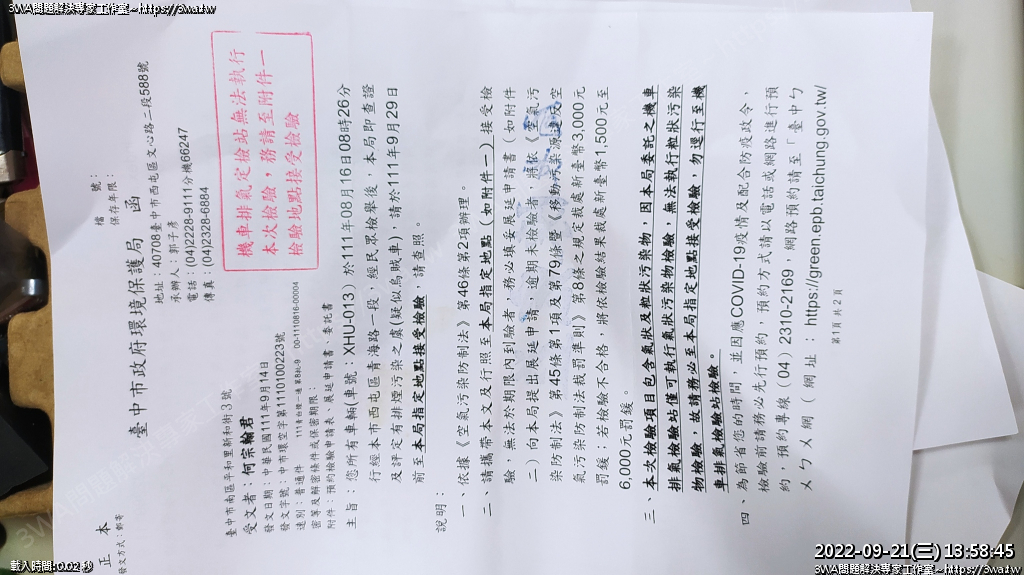 3WA問題解決專家工作室~https://3wa.tw
3WA問題解決專家工作室~https://3wa.tw
檔　　號：
保存年限：
臺中市政府環境保護局　函
地址：40708臺中市西屯區文心路二段588號
承辦人：郭子彥
電話：(04)2228-9111分機66247
傳真：(04)2328-6884
機車排氣定檢站無法執行
本次檢驗，務請至附件一
檢驗地點接受檢驗
正　本
發文方式：郵寄
臺中市南區平和里新和街3號
受文者：何宗翰君
發文日期：中華民國111年9月14日
發文字號：中市環空字第1110100223號
速別：普通件
密等及解密條件或保密期限：
附件：預約檢驗申請表、展延申請書、委託書
主旨：您所有車輛(車號：XHU-013）於111年08月16日08時26分
行經本市西屯區青海路一段，經民眾檢舉後，本局即查證
及評定有排煙污染之虞(疑似烏賊車)，請於111年9月29日
前至本局指定地點接受檢驗，請查照。
說明：
一、依據《空氣污染防制法》第46條第2項辦理。
二、請攜帶本文及行照至本局指定地點（如附件一）接受檢
驗，無法於期限內到驗者，務必填妥展延申請書（如附件
二）向本局提出展延申請，逾期未檢驗者，將依《空氣污
染防制法》第45條第1項及第79條暨《移動污染源違反空
氣污染防制法裁罰準則》第8條之規定裁處新臺幣3,000元
罰鍰；若檢驗不合格，將依檢驗結果裁處新臺幣1,500元至
6,000元罰鍰。
三、本次檢驗項目包含氣狀及粒狀污染物，因本局委託之機車
排氣檢驗站僅可執行氣狀污染物檢驗，無法執行粒狀污染
物檢驗，故請務必至本局指定地點接受檢驗，勿逕行至機
車排氣檢驗站檢驗。
四、為節省您的時間，並因應COVID-19疫情及配合防疫政令，
檢驗前請務必先行預約，預約方式請以電話或網路進行預
約，預約專線（04）2310-2169，網路預約請至「臺中ㄅ
ㄨㄅㄨ網（網址：https://green.epb.taichung.gov.tw/
第1頁 共2頁
載入時間:0.02 秒
2022-09-21(三) 13:58:45
3WA問題解決專家工作室~https://3wa.tw